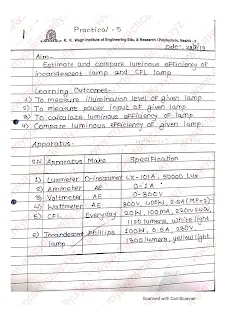 Practical - 5
K. K. Wagh Institute of Engineering Edu. & Research (Polytechnic, Nashik -3
Date:
Aim:-
Estimate and compare luminous efficiency of
incandescent lamp and CFL lamp
Learning Outcomes:-
1) To measure illumination level of given lamp
2) To measure power input of given lamp
3) To calculate luminous efficiency of lamp.
4) Compare luminous efficiency of given lamp.
Apparatus:-
S.N Apparatus Make Specification
1) Luxmeter D-instrument LX-101A, 50000 Lux
2) Ammeter AE 0-1A
3) Voltmeter AE 0-300V
4) Wattmeter AE 300V, 400W, 2.5A (MF=2)
5) CFL Everyday 20W, 100mA, 230V 50Hz,
1120 lumens, White light
6) Incandescent phillips 100W, 0.5A, 230V,
lamp 1300 lumens, yellow light
Scanned with CamScanner